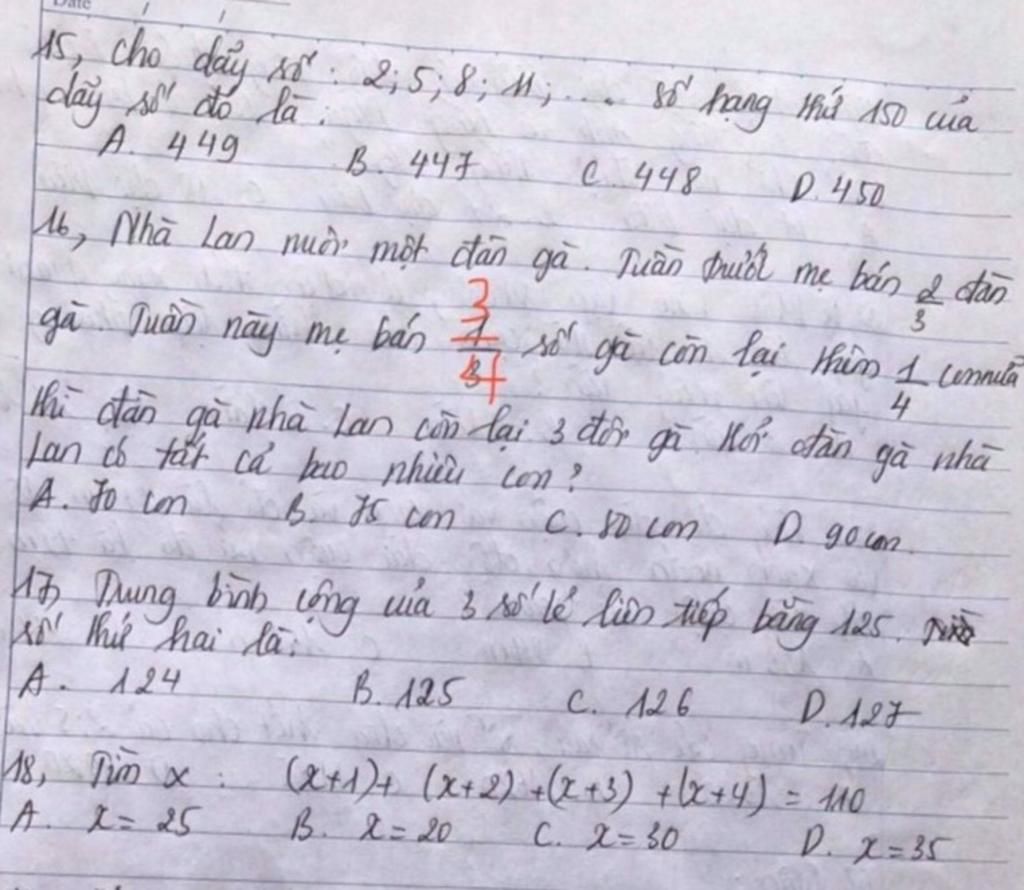 Date
15, cho dãy số : 2; 5; 8; 11; .... số hạng thứ 150 của
dãy số đó là :
A. 449 B. 447 C. 448 D. 450
16, Nhà Lan nuôi một đàn gà. Tuần trước mẹ bán 2/3 đàn
gà. Tuần này mẹ bán 3/4 số gà còn lại thêm 1/4 con nữa
thì đàn gà nhà Lan còn lại 3 đôi gà Hỏi đàn gà nhà
Lan có tất cả bao nhiêu con?
A. 70 con B. 75 con C. 80 con D. 90 con.
17, Trung bình cộng của 3 số lẻ liên tiếp bằng 125.
số thứ hai là:
A. 124 B. 125 C. 126 D. 127
18, Tìm x : (x+1)+ (x+2) +(x+3) +(x+4) = 110
A. x= 25 B. x=20 C. x=30 D. x=35